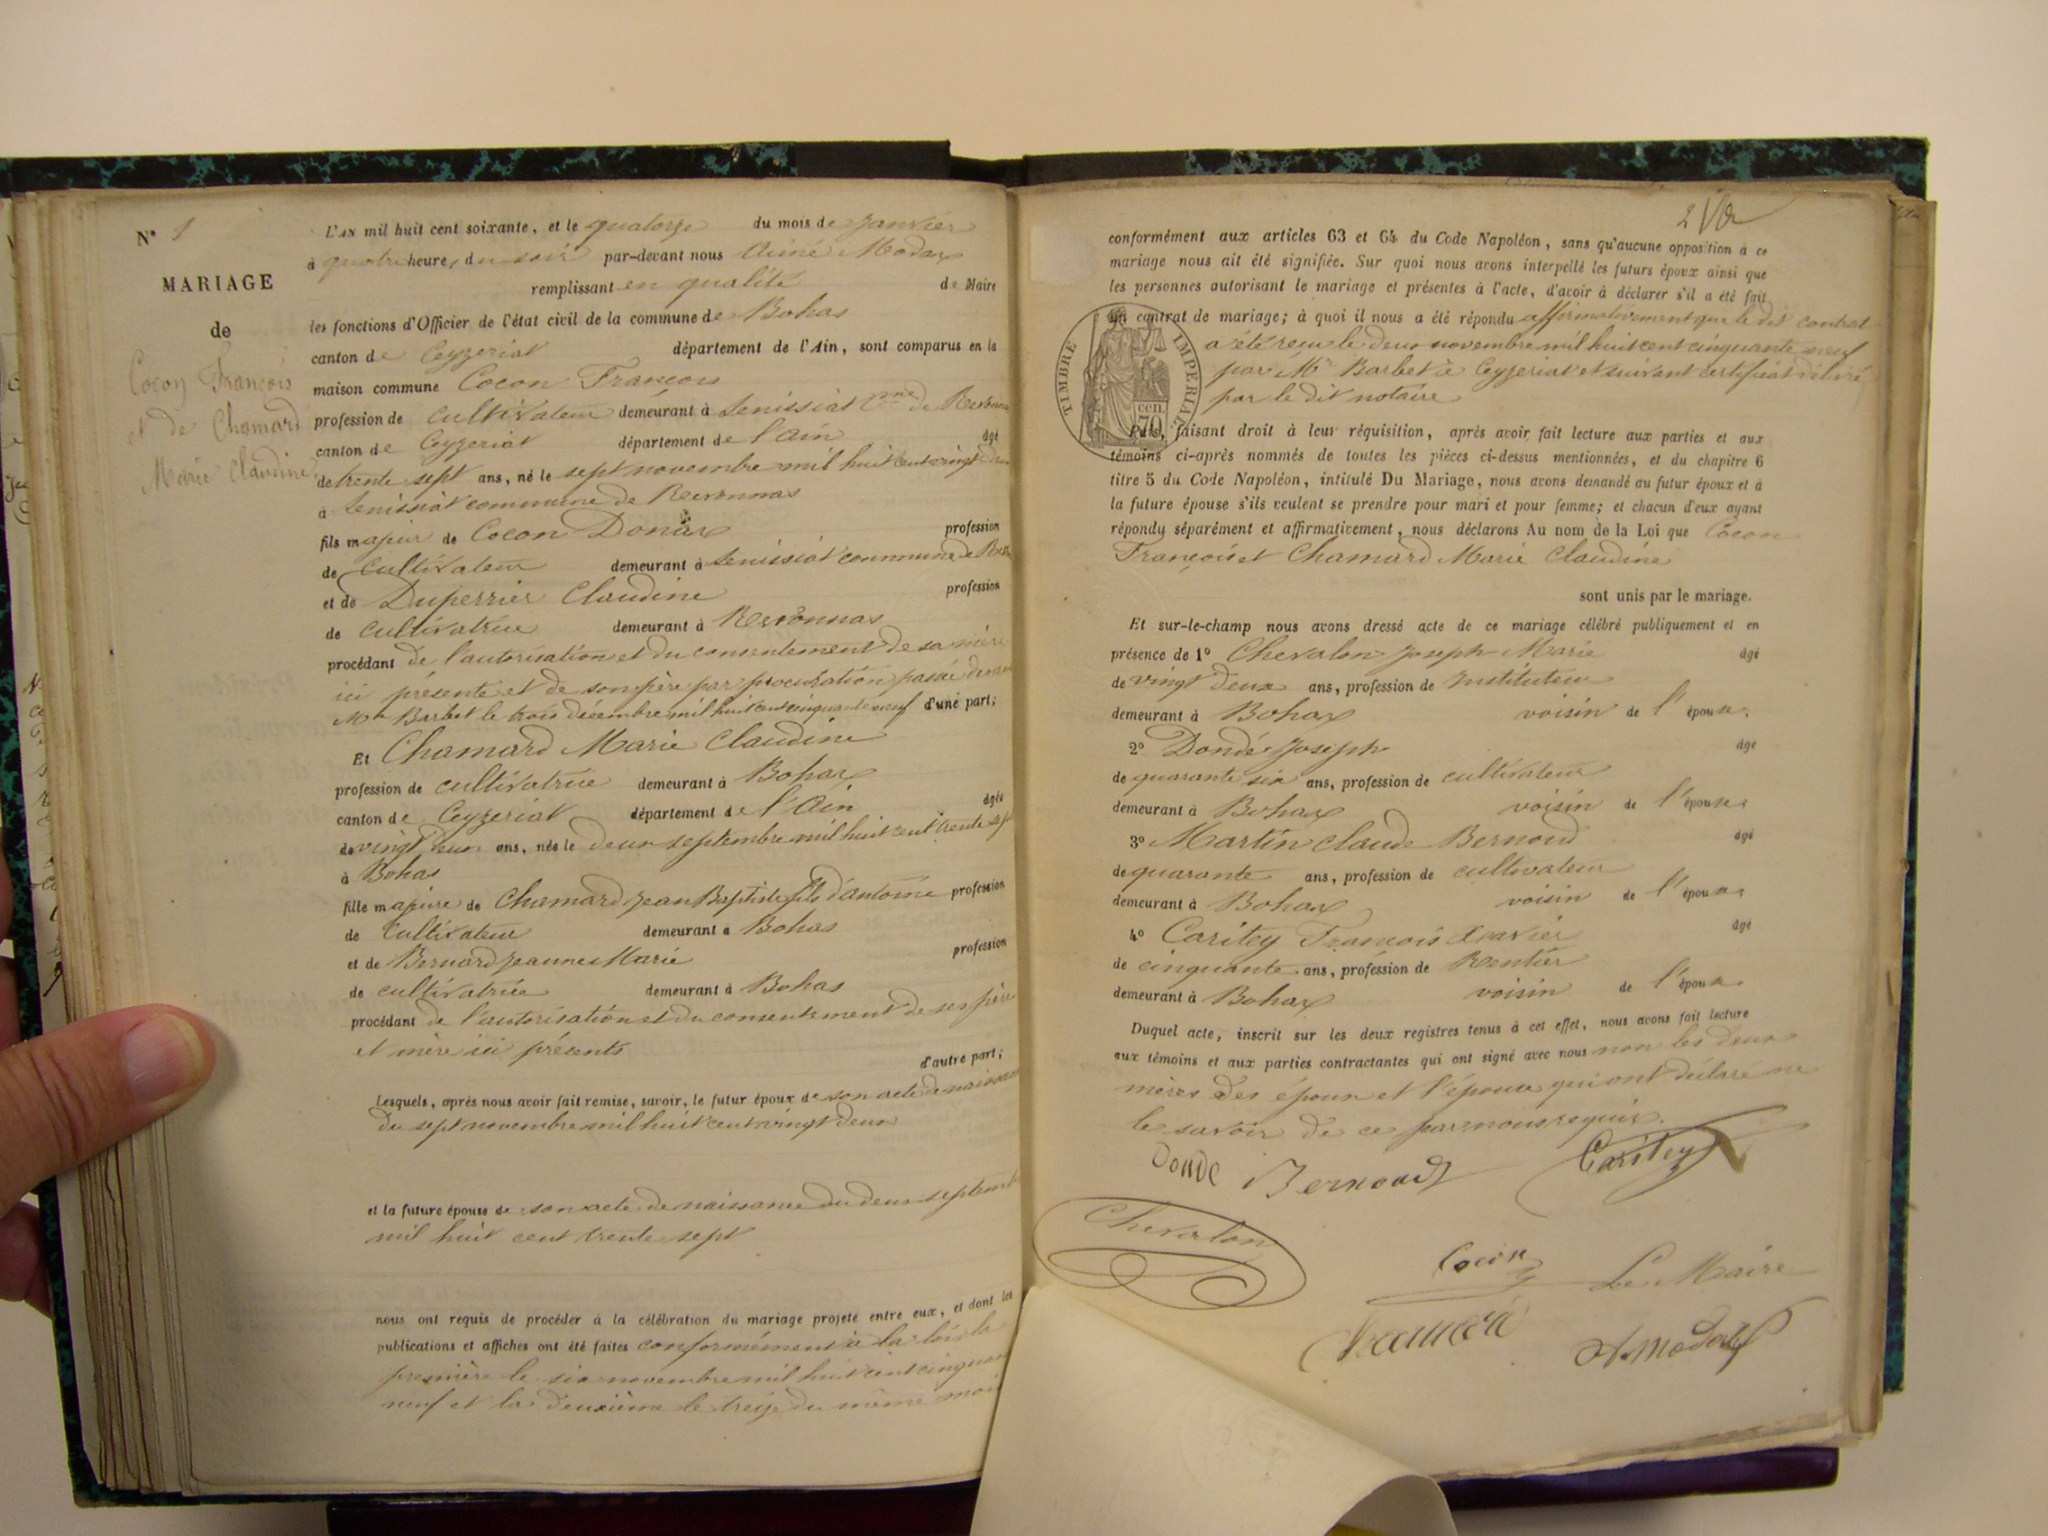 N° 1
MARIAGE
de
Cocon François
et de Chamard
Marie Claudine
L'AN mil huit cent soixante, et le quatorze du mois de Janvier
à quatre heures du soir par-devant nous Aimé Modas
remplissant en qualité de Maire
les fonctions d'Officier de l'état civil de la commune de Bohas
canton de Ceyzeriat département de l'Ain, sont comparus en la
maison commune Cocon François
profession de cultivateur demeurant à Senissiat Cne de Revonnas
canton de Ceyzeriat département de l'Ain âgé
de trente sept ans, né le sept novembre mil huit cent vingt deux
à Senissiat commune de Revonnas
fils majeur de Cocon Donax profession
de Cultivateur demeurant à Senissiat commune de Rev
et de Duperrier Claudine profession
de cultivatrice demeurant à Revonnas
procédant de l'autorisation et du consentement de sa mère
ici présente et de son père par procuration passée devant
Me Barbet le trois décembre mil huit cent cinquante neuf d'une part;
Et Chamard Marie Claudine
profession de cultivatrice demeurant à Bohas
canton de Ceyzeriat département de l'Ain âgée
de vingt deux ans, née le deux septembre mil huit cent trente sept
à Bohas
fille majeure de Chamard Jean Baptiste fils d'antoine profession
de Cultivateur demeurant à Bohas
et de Bernard Jeanne Marie profession
de cultivatrice demeurant à Bohas
procédant de l'autorisation et du consentement de ses père
et mère ici présents
d'autre part;
Lesquels, après nous avoir fait remise, savoir, le futur époux de son acte de naissance
du sept novembre mil huit cent vingt deux
et la future épouse de son acte de naissance du deux septembre
mil huit cent trente sept
nous ont requis de procéder à la célébration du mariage projeté entre eux, et dont les
publications et affiches ont été faites conformément à la loi la
première le six novembre mil huit cent cinquante
neuf et la deuxième le treize du même mois
2
conformément aux articles 63 et 64 du Code Napoléon, sans qu'aucune opposition à ce
mariage nous ait été signifiée. Sur quoi nous avons interpellé les futurs époux ainsi que
les personnes autorisant le mariage et présentes à l'acte, d'avoir à déclarer s'il a été fait
un contrat de mariage; à quoi il nous a été répondu affirmativement que le dit contrat
a été reçu le deux novembre mil huit cent cinquante neuf
par Me Barbet à Ceyzeriat et suivant certificat délivré
par le dit notaire
TIMBRE IMPERIAL
70 cen.
Puis, faisant droit à leur réquisition, après avoir fait lecture aux parties et aux
témoins ci-après nommés de toutes les pièces ci-dessus mentionnées, et du chapitre 6
titre 5 du Code Napoléon, intitulé Du Mariage, nous avons demandé au futur époux et à
la future épouse s'ils veulent se prendre pour mari et pour femme; et chacun d'eux ayant
répondu séparément et affirmativement, nous déclarons Au nom de la Loi que Cocon
François et Chamard Marie Claudine
sont unis par le mariage.
Et sur-le-champ nous avons dressé acte de ce mariage célébré publiquement et en
présence de 1° Chevalon Joseph Marie âgé
de vingt deux ans, profession de Instituteur
demeurant à Bohas voisin de l'épouse.
2° Dondé Joseph âgé
de quarante six ans, profession de cultivateur
demeurant à Bohas voisin de l'épouse.
3° Martin Claude Bernoud âgé
de quarante ans, profession de cultivateur
demeurant à Bohas voisin de l'épouse.
4° Caritey François Xavier âgé
de cinquante ans, profession de Rentier
demeurant à Bohas voisin de l'épouse.
Duquel acte, inscrit sur les deux registres tenus à cet effet, nous avons fait lecture
aux témoins et aux parties contractantes qui ont signé avec nous non les deux
mères des époux et l'épouse qui ont déclaré ne
le savoir de ce par nous requis.
Donde Bernoud Caritey
Chevalon
Cocon Le Maire